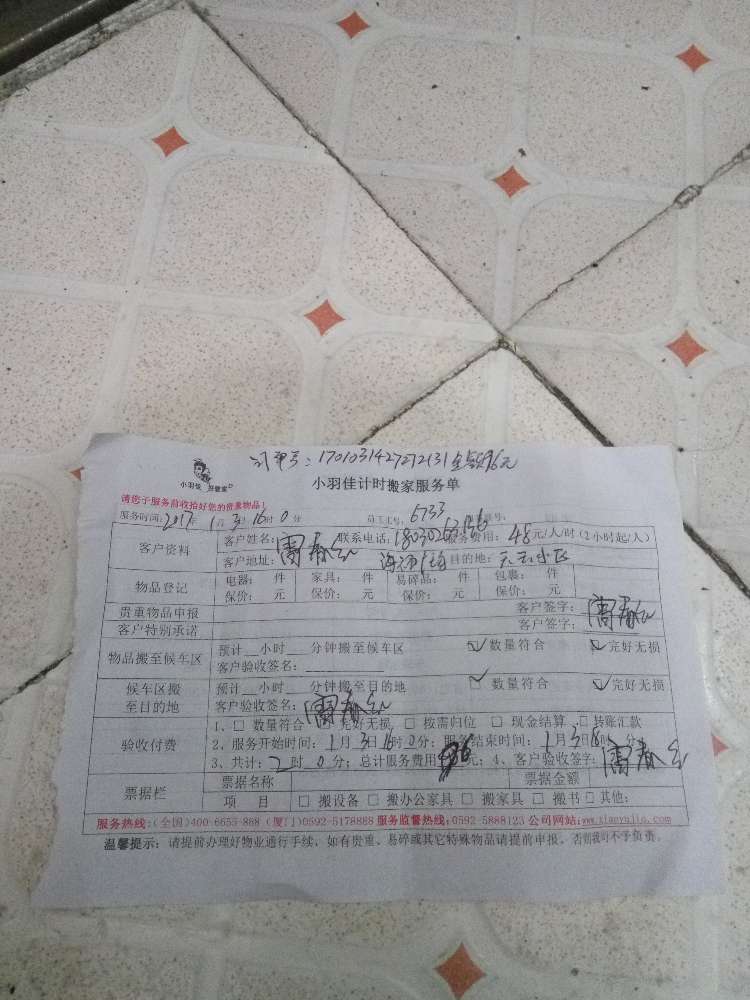 订单号:17010314272721131金额96元
小羽佳 好管家
小羽佳计时搬家服务单
请您于服务前收拾好您的贵重物品!
服务时间:2017年1月3日16时0分 员工工号:6733
客户资料 客户姓名: 联系电话: 服务费用:48元/人/时(2小时起/人)
客户地址: 目的地:天云小区
物品登记 电器: 件 家具: 件 易碎品: 件 包裹: 件
保价: 元 保价: 元 保价: 元 保价: 元
贵重物品申报 客户签字:
客户特别承诺 客户签字:
物品搬至候车区 预计__小时__分钟搬至候车区 数量符合 完好无损
客户验收签名:
候车区搬至目的地 预计__小时__分钟搬至目的地 数量符合 完好无损
客户验收签名:
验收付费 1、□ 数量符合 完好无损 □ 按需归位 □ 现金结算 □ 转账汇款
2、服务开始时间:1月3日16时0分;服务结束时间:1月3日18时 分;
3、共计:2时0分;总计服务费用96元;4、客户验收签字:
票据栏 票据名称 票据金额
项 目 □ 搬设备 □ 搬办公家具 □ 搬家具 □ 搬书 □ 其他:
服务热线:(全国)400-6655-868 (厦门)0592-5178888 服务监督热线:0592-5888123 公司网站:www.xiaoyujia.com
温馨提示:请提前办理好物业通行手续,如有贵重、易碎或其它特殊物品请提前申报,否则我司不予负责。